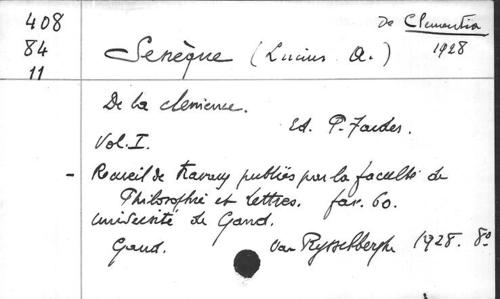 408
84
11
De Clementia
1928
Senèque (Lucius A.)
De la clemence.
Ed. P. Faider.
Vol. I.
- Recueil de travaux publiés par la faculté de
Philosophie et Lettres. fas. 60.
Université de Gand.
Gand. Van Rysselberghe 1928. 8º